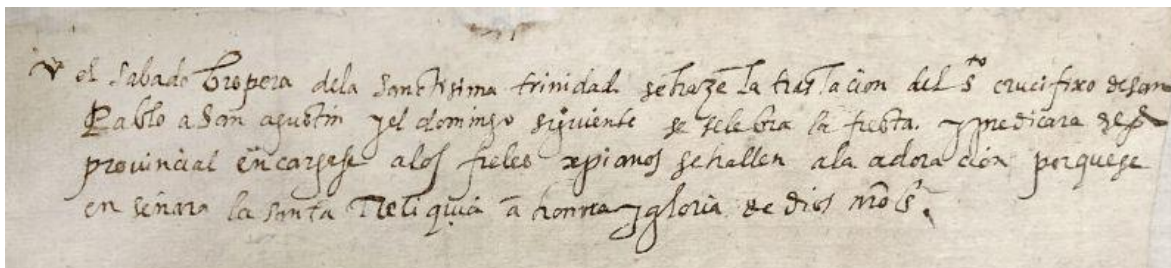 el sabado bispera dela sanctisima trinidad sehaze la traslacion del sto crucifixo desan
Pablo a san agustin y el domingo siguiente se zelebra la fiesta. y predicara el pe
provincial encargese alos fieles xpianos sehallen ala adoracion porquese
enseñara la santa Reliquia a honrra y gloria de dios nro sr.